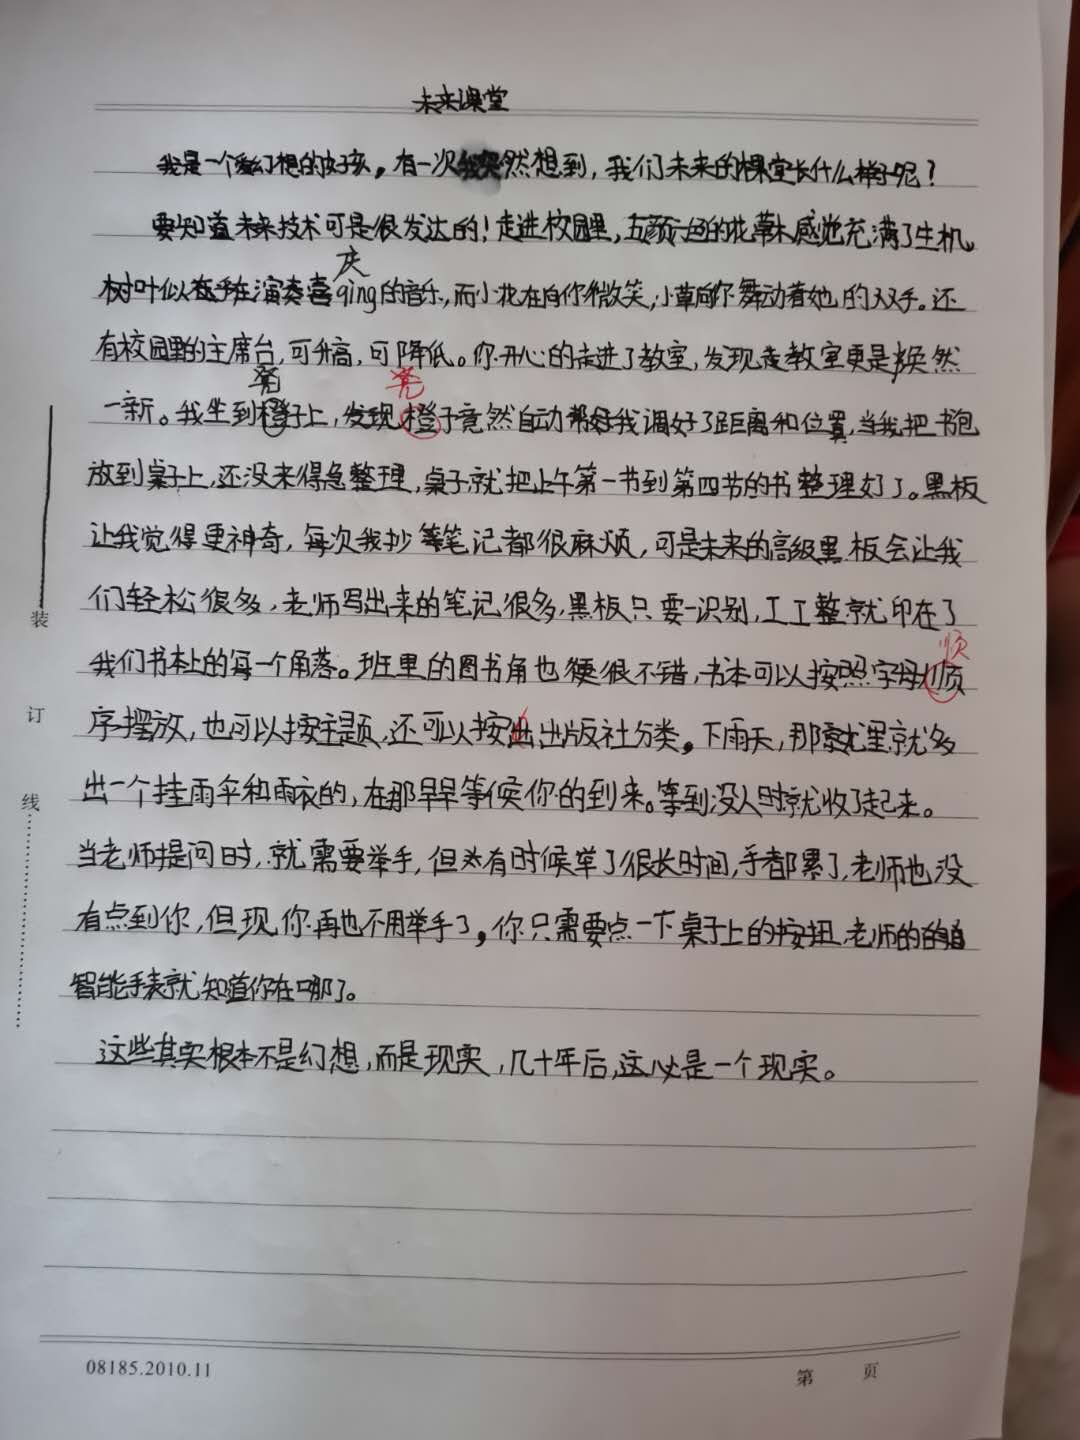 未来课堂
我是一个爱幻想的女孩，有一次我突然想到，我们未来的课堂长什么样子呢？
要知道未来技术可是很发达的！走进校园里，五颜六色的花草木感觉充满了生机。
庆
树叶似在演奏喜qing的音乐，而小花在向你微笑，小草向你舞动着她的双手。还
有校园里的主席台，可升高，可降低。你开心的走进了教室，发现走教室更是焕然
凳 凳
一新。我坐到橙子上，发现橙子竟然自动帮我调好了距离和位置，当我把书包
放到桌子上，还没来得急整理，桌子就把上午第一节到第四节的书整理好了。黑板
让我觉得更神奇，每次我抄笔记都很麻烦，可是未来的高级黑板会让我
们轻松很多，老师写出来的笔记很多，黑板只要一识别，工工整就印在了
顺
我们书本上的每一个角落。班里的图书角也很不错，书本可以按照字母顺
序摆放，也可以按主题，还可以按出出版社分类。下雨天，那就里就多
出一个挂雨伞和雨衣的，在那早早等候你的到来。等到没人时就收了起来。
当老师提问时，就需要举手，但有时候举了很长时间，手都累了，老师也没
有点到你，但现你再也不用举手了，你只需要点一下桌子上的按扭，老师的
智能手表就知道你在哪了。
这些其实根本不是幻想，而是现实，几十年后，这必是一个现实。
装
订
线
08185.2010.11
第 页